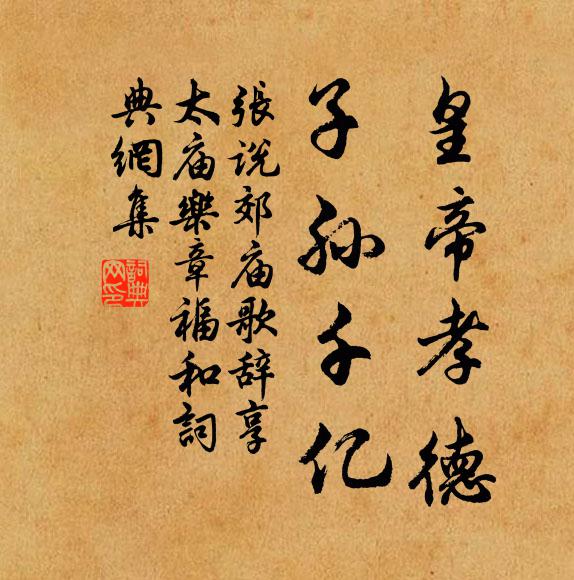 皇帝孝德
子孙千亿
张说郊庙歌辞享
太庙樂章福和詞
典網集
詞典网印